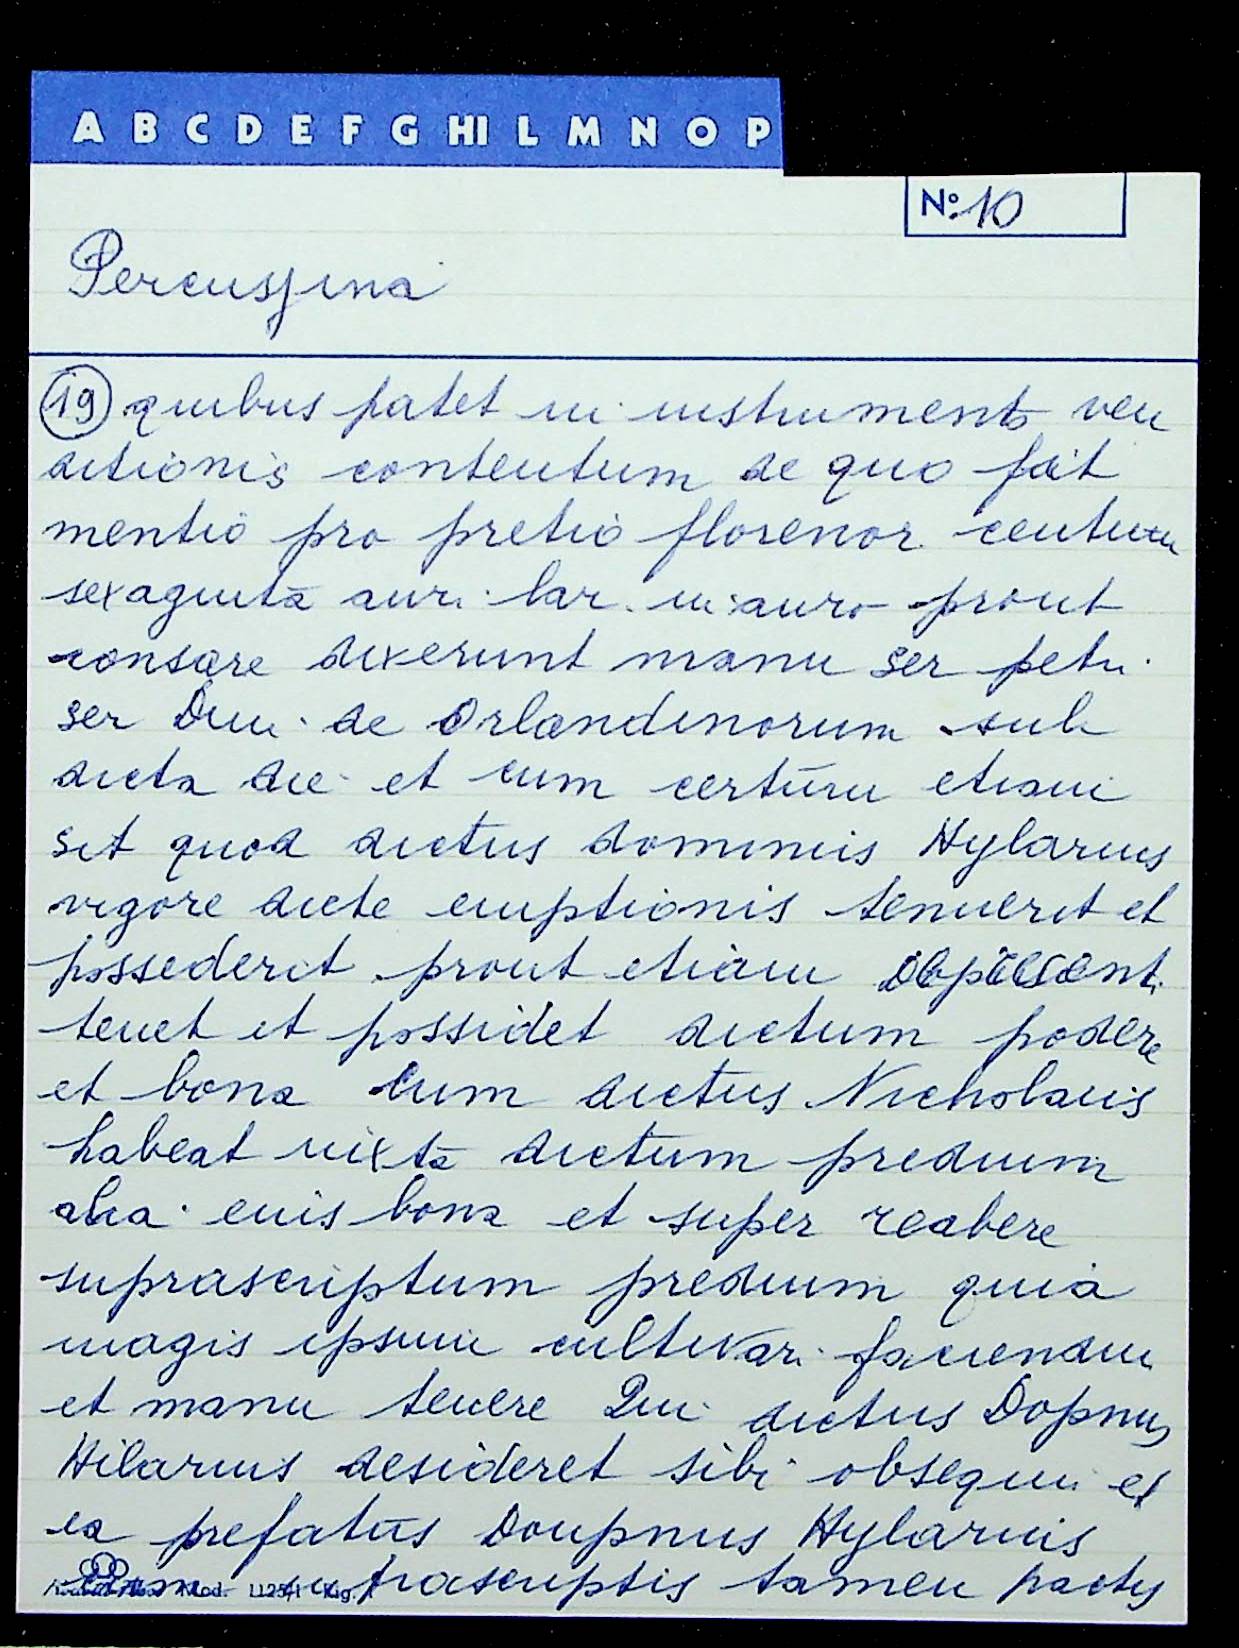 A B C D E F G HI L M N O P
No: 10
Percussina
19 quibus patet in instrumento ven
ditionis contentum de quo fait
mentio pro pretio florenor. centum
sexaginta auri lar. in auro prout
constare dixerunt manu ser petri
ser Dni de Orlandinorum sub
dicta die et cum certum etiam
sit quod dictus dominus Hylarius
vigore dicte emptionis tenuerit et
possederit prout etiam
tenet et possidet dictum podere
et bona cum dictus Nicholaus
habeat iuxta dictum predium
alia eius bona et super reabere
suprascriptum predium quia
magis ipsum cultivari faciendum
et manu tenere Qui dictus Dopnus
Hilarius desideret sibi obsequi et
ea prefatus Doupnus Hylarius
Mod. trascriptis tamen pactis